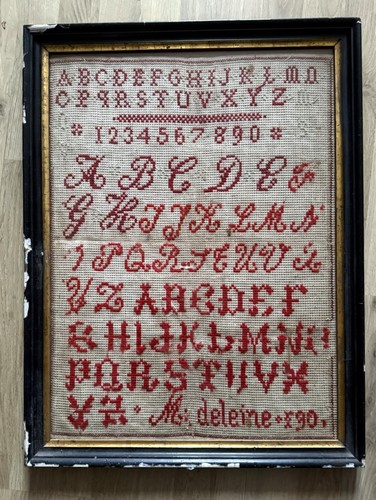 ABCDEFGHIJKLMN
OPQRSTUVXYZ
1234567890
A B C D E F
G H I J K L M N
O P Q R S T U V X
Y Z A B C D E F
G H I J K L M N O
P Q R S T U V X
Y Z